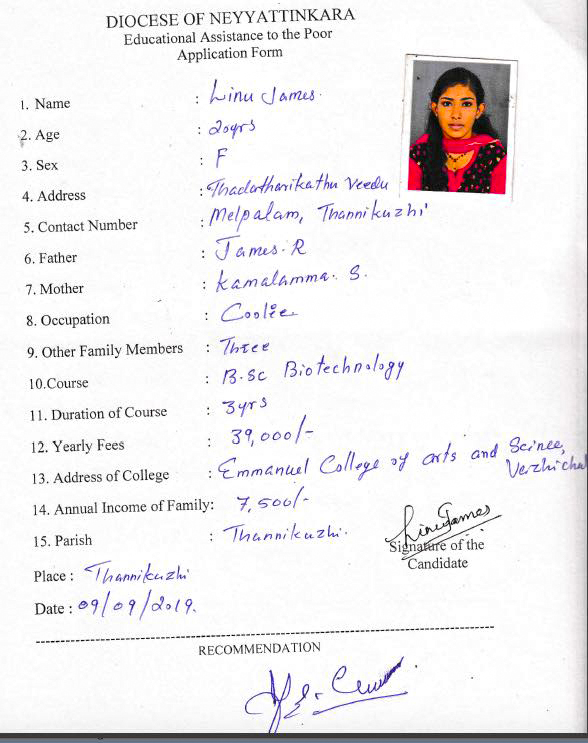 DIOCESE OF NEYYATTINKARA
Educational Assistance to the Poor
Application Form
1. Name : Linu James.
2. Age : 20yrs
3. Sex : F
4. Address : Thadatharikathu Veedu
5. Contact Number : Melpalam, Thannikuzhi
6. Father : James. R
7. Mother : Kamalamma. S.
8. Occupation : Coolie
9. Other Family Members : Three
10.Course : B.Sc Biotechnology
11. Duration of Course : 3yrs
12. Yearly Fees : 39,000/-
13. Address of College : Emmanuel College of arts and Scinee,
Vazhichal
14. Annual Income of Family: 7,500/-
15. Parish : Thannikuzhi.
Linu James
Signature of the
Candidate
Place : Thannikuzhi
Date : 09/09/2019.
RECOMMENDATION